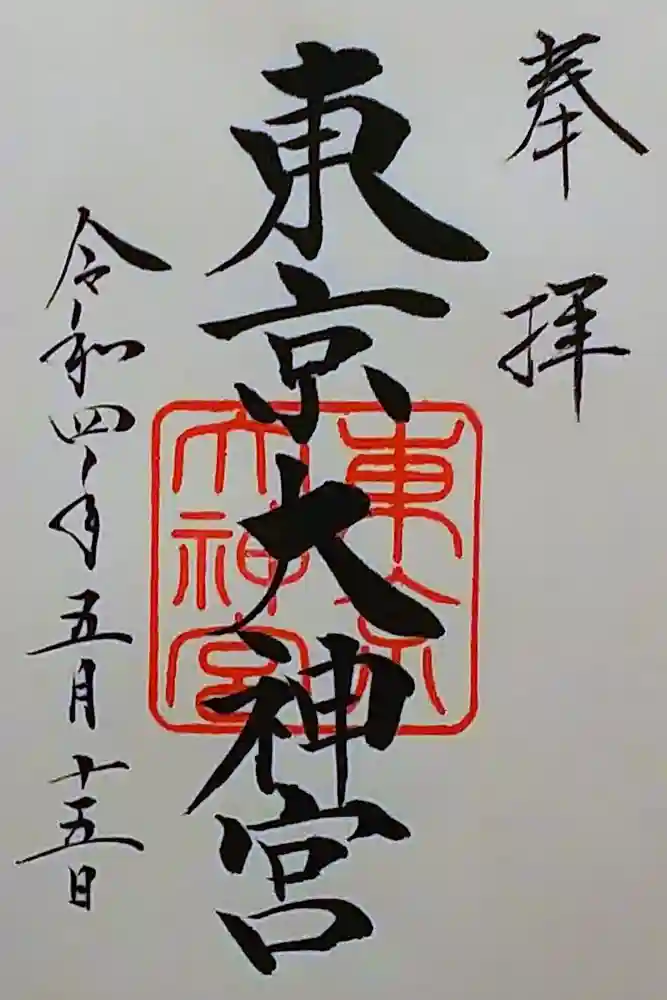 奉拝
東京大神宮
東京
大神宮
令和四年五月十五日